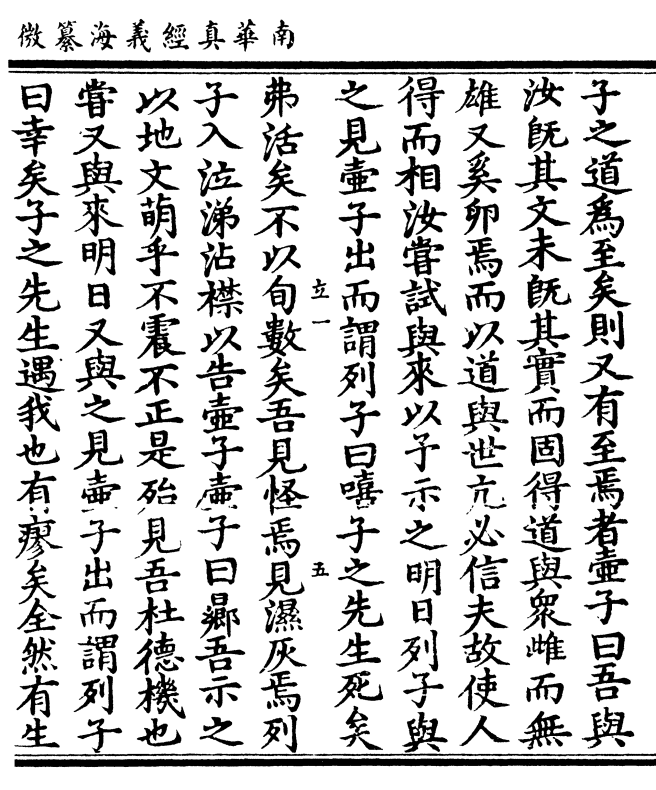 南華真經義海纂微
子之道為至矣則又有至焉者壺子曰吾與
汝旣其文未旣其實而固得道與眾雌而無
雄又奚卵焉而以道與世亢必信夫故使人
得而相汝嘗試與來以予示之明日列子與
之見壺子出而謂列子曰嘻子之先生死矣
立一
五
弗活矣不以旬數矣吾見怪焉見濕灰焉列
子入泣涕沾襟以告壺子壺子曰曏吾示之
以地文萌乎不震不正是殆見吾杜德機也
嘗又與來明日又與之見壺子出而謂列子
曰幸矣子之先生遇我也有瘳矣全然有生